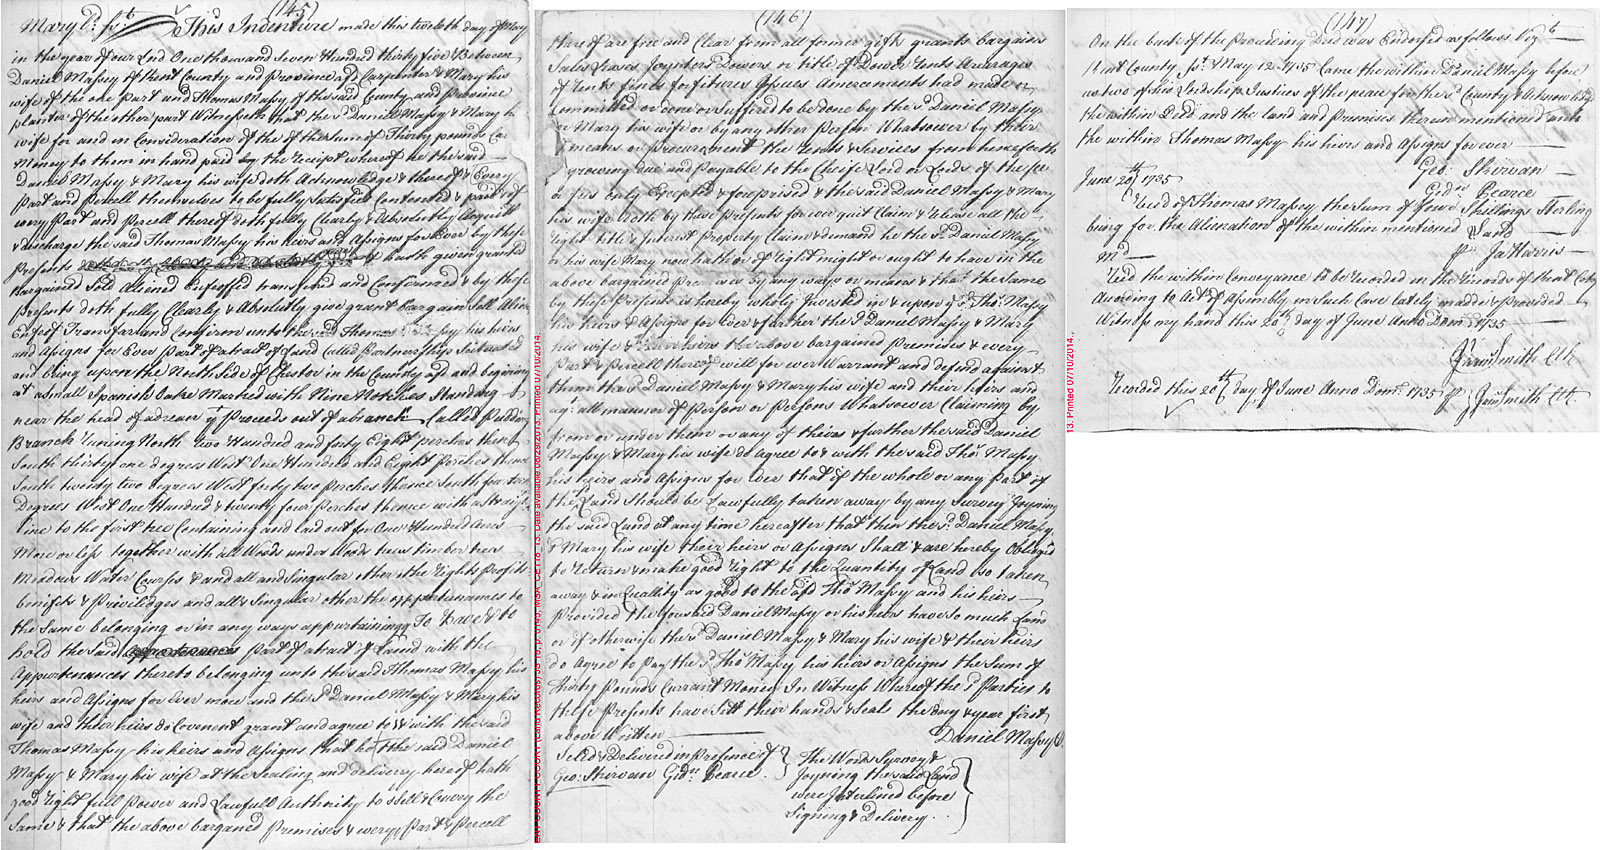 (145)
Mary Ld. fst This Indenture made this twelth day of May
in the year of our Lord One thousand Seven Hundred thirty five Between
Daniel Massy of Kent County and Province afd Carpenter & Mary his
wife of the one part and Thomas Massy of the said County and Province
planter of the other part Witneseth that the sd Daniel Massy & Mary his
wife for and in Consideration of the of the Sum of Thirty pounds Cur
Money to them in hand paid by the receipt whereof he the said
Daniel Massy & Mary his wife doth Acknowledge & thereof & Every
part and Percell themselves to be fully Satisfied Contented & paid & of
every Part and Percell thereof doth fully Clearly & Absolutly Acquitt
& discharge the said Thomas Massy his heirs and Assigns for Ever by these
Presents & hath given granted
Bargained Sold Aliened Enfeoffed transfered and Confirmed & by these
presents doth fully Clearly & Absolutly give grant bargain Sell Alien
Enfeof Transfer and Confirm unto the said Thomas Massy his heirs
and Assigns for Ever Part of a tract of Land Called Partnership Situated
and being upon the North Side of Chester in the County afd and begining
at a Small Spanish Oake Marked with Nine Notches Standing
near the head of a drean yt Proceeds out of a branch Called Pudding
Branch runing North two Hundred and forty Eight perches thence
South thirty one degrees West One Hundred and Eight Perches thence
South twenty two degrees West forty two Perches thence South fourteen
Degrees West One Hundred & twenty four Perches thence with a straight
line to the first tree Containing and laid out for One Hundred Acres
More or less together with all Woods under Woods trees timber trees
Meadows Water Courses & and all and Singular other the Rights Profits
benefits & Priviledges and all & Singular other the appurtenances to
the Same belonging or in any ways appurtaining To have & to
hold the said appurtenances part of a tract of Land with the
Appurtenances thereto belonging unto the said Thomas Massy his
heirs and Assigns for Ever more and the sd Daniel Massy & Mary his
wife and their heirs do Covenent grant and agree to & with the said
Thomas Massy his heirs and Assigns that he the said Daniel
Massy & Mary his wife at the Sealing and delivery hereof hath
good right full Power and Lawfull Authority to Sell & Convey the
Same & that the above barganed Premises & every Part & Percell
(146)
thereof are free and Clear from all former gifts grants bargains
Sales Leases Joynters Dowers or title of Dower rents Arearages
of rents fines forfitures Issues Amercments had made or
Committed or don or Suffered to be done by the sd Daniel Massy
or Mary his wife or by any other Person Whatsoever by their
means or procurement the rents & Services from henceforth
growing due and Payable to the Cheife Lord or Lords of the fee
or fees only Excepted & foreprised & the said Daniel Massy & Mary
his wife doth by these Presents for ever quit Claim & release all the
right title & Interest Property Claim & demand he the sd Daniel Massy
or his wife Mary now hath or of right might or ought to have in the
above bargained premises by any ways or means & that the Same
by these Presents is hereby wholy Invested in & upon ye sd Thos Massy
his heirs & Assigns for Ever & farther the sd Daniel Massy & Mary
his wife & heirs the above bargained Premises & every
Part & Percell thereof will for ever Warrant and defend against
them the sd Daniel Massy & Mary his wife and their heirs and
agt all manner of Person or Persons Whatsoever Claiming by
from or under them or any of theirs & further the said Daniel
Massy & Mary his wife do agree to & with the said Thos Massy
his heirs and Assigns for Ever that if the whole or any part of
the Land Should be Lawfully taken away by any Survey Joyning
the said Land at any time hereafter that then the sd Daniel Massy
& Mary his wife their heirs or Assigns Shall & are hereby Obliged
to return & make good right to the Quantity of Land so taken
away & in Quallity as good to the afd Thos Massy and his heirs
Provided the foresaid Daniel Massy or his heirs have so much Land
or if otherwise the sd Daniel Massy & Mary his wife & their heirs
do Agree to Pay the sd Thos Massy his heirs or Assigns the Sum of
thirty Pounds Currant Money In Witness Whereof the sd Parties to
these Presents have Sett their hands & Seal the day & year first
above Written
Daniel Massy S.
Seled & Delivered in Presence of
Geo: Skirvan Gidn Pearce
The Words Survey &
Joyning the said Land
were Interlined before
Signing & Delivery
(147)
On the back of the Preceeding Deed was Endorsed as follows Vizt
Kent County sst May 12 1735 Came the within Daniel Massy before
us two of his Lordships Justices of the peace for the sd County & Acknowledged
the within Deed and the land and Premises therein mentioned unto
the within Thomas Massy his heirs and Assigns for ever
Geo. Skirvan
Gidn Pearce
June 20th 1735
Recd of Thomas Massey the Sum of four Shillings Sterling
being for the Alienation of the within mentioned Land
pr Ja Harris
Md
Recd the within Conveyance to be recorded in the records of Kent Coty
According to Act of Assembly in Such Case lately made & Provided
Witness my hand this 20th day of June Anno Dom. 1735
Jams Smith Clk
Recorded this 20th day of June Anno Domi 1735 pr Jams Smith Clk
13. Printed 07/10/2014.